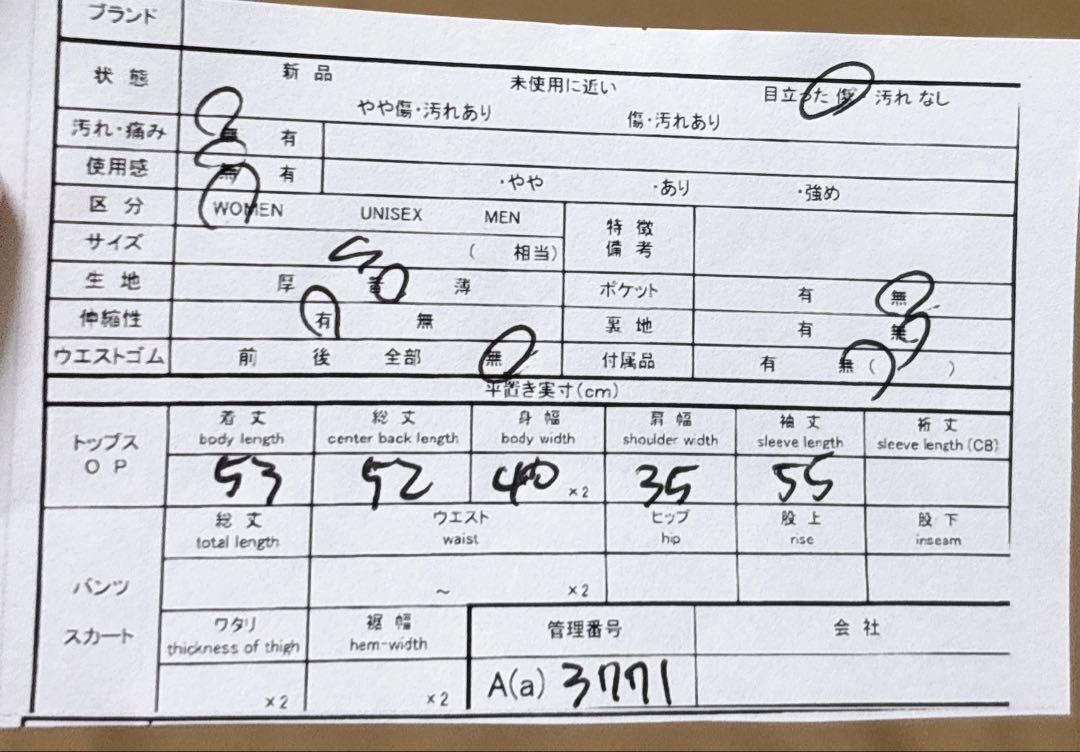 ブランド
状態 新品 未使用に近い 目立った傷・汚れなし
やや傷・汚れあり 傷・汚れあり
汚れ・痛み 無 有
使用感 無 有 ・やや ・あり ・強め
区分 WOMEN UNISEX MEN 特徴
備考
サイズ ( 相当)
生地 厚 普 薄 ポケット 有 無
伸縮性 有 無 裏地 有 無
ウエストゴム 前 後 全部 無 付属品 有 無 ( )
平置き実寸(cm)
トップス
OP
着丈 総丈 身幅 肩幅 袖丈 裄丈
body length center back length body width shoulder width sleeve length sleeve length (CB)
53 52 40 ×2 35 55
総丈 ウエスト ヒップ 股上 股下
total length waist hip rise inseam
パンツ ~ ×2
スカート
ワタリ 裾幅 管理番号 会社
thickness of thigh hem-width
×2 ×2 A(a) 3771